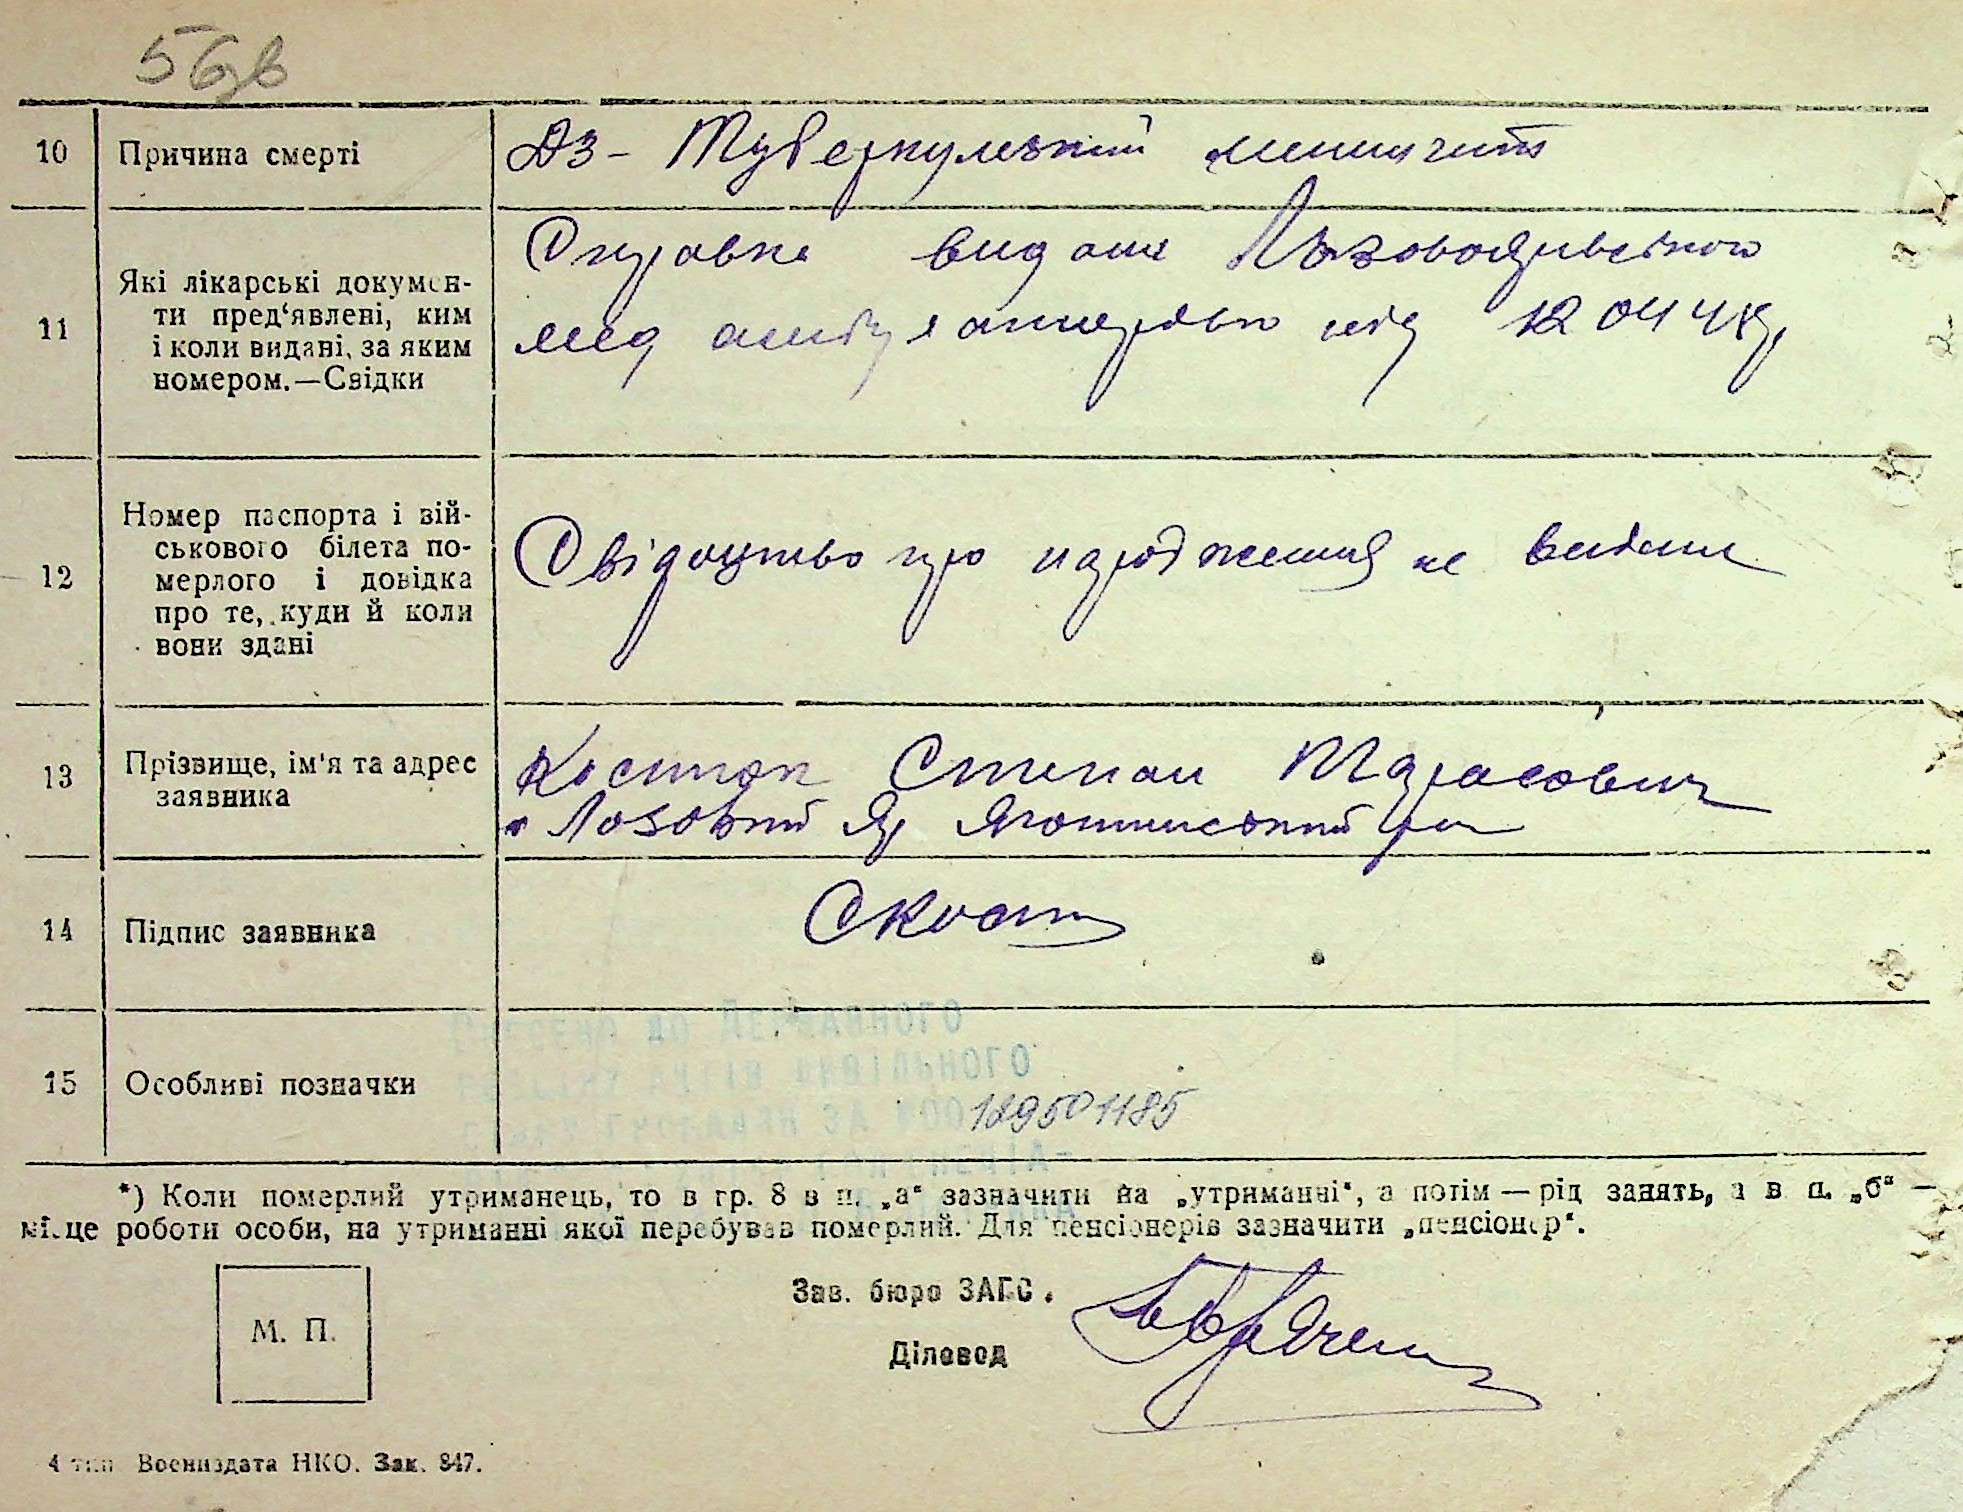 56зв
10 Причина смерті ДЗ - Туберкулезний менингит
11 Які лікарські документи пред'явлені, ким і коли видані, за яким номером.—Свідки
Справка видана Лозовоярівською
мед амбулаторією від 12 04 48 р,
12 Номер паспорта і військового білета померлого і довідка про те, куди й коли вони здані
Свідоцтво про народження не видали
13 Прізвище, ім'я та адрес заявника
Костюк Степан Тарасович
Лозовий Яр Яготинський р-н
14 Підпис заявника СКост
15 Особливі позначки
ДО ДЕРЖАВНОГО
АКТІВ ЦИВІЛЬНОГО
ГРОМАДЯН ЗА
189501185
*) Коли померлий утриманець, то в гр. 8 в п. „а“ зазначити на „утриманні“, а потім — рід занять, а в п. „б“ —
місце роботи особи, на утриманні якої перебував померлий. Для пенсіонерів зазначити „пенсіонер“.
Зав. бюро ЗАГС.
М. П.
Діловод
4 тип Воениздата НКО. Зак. 847.